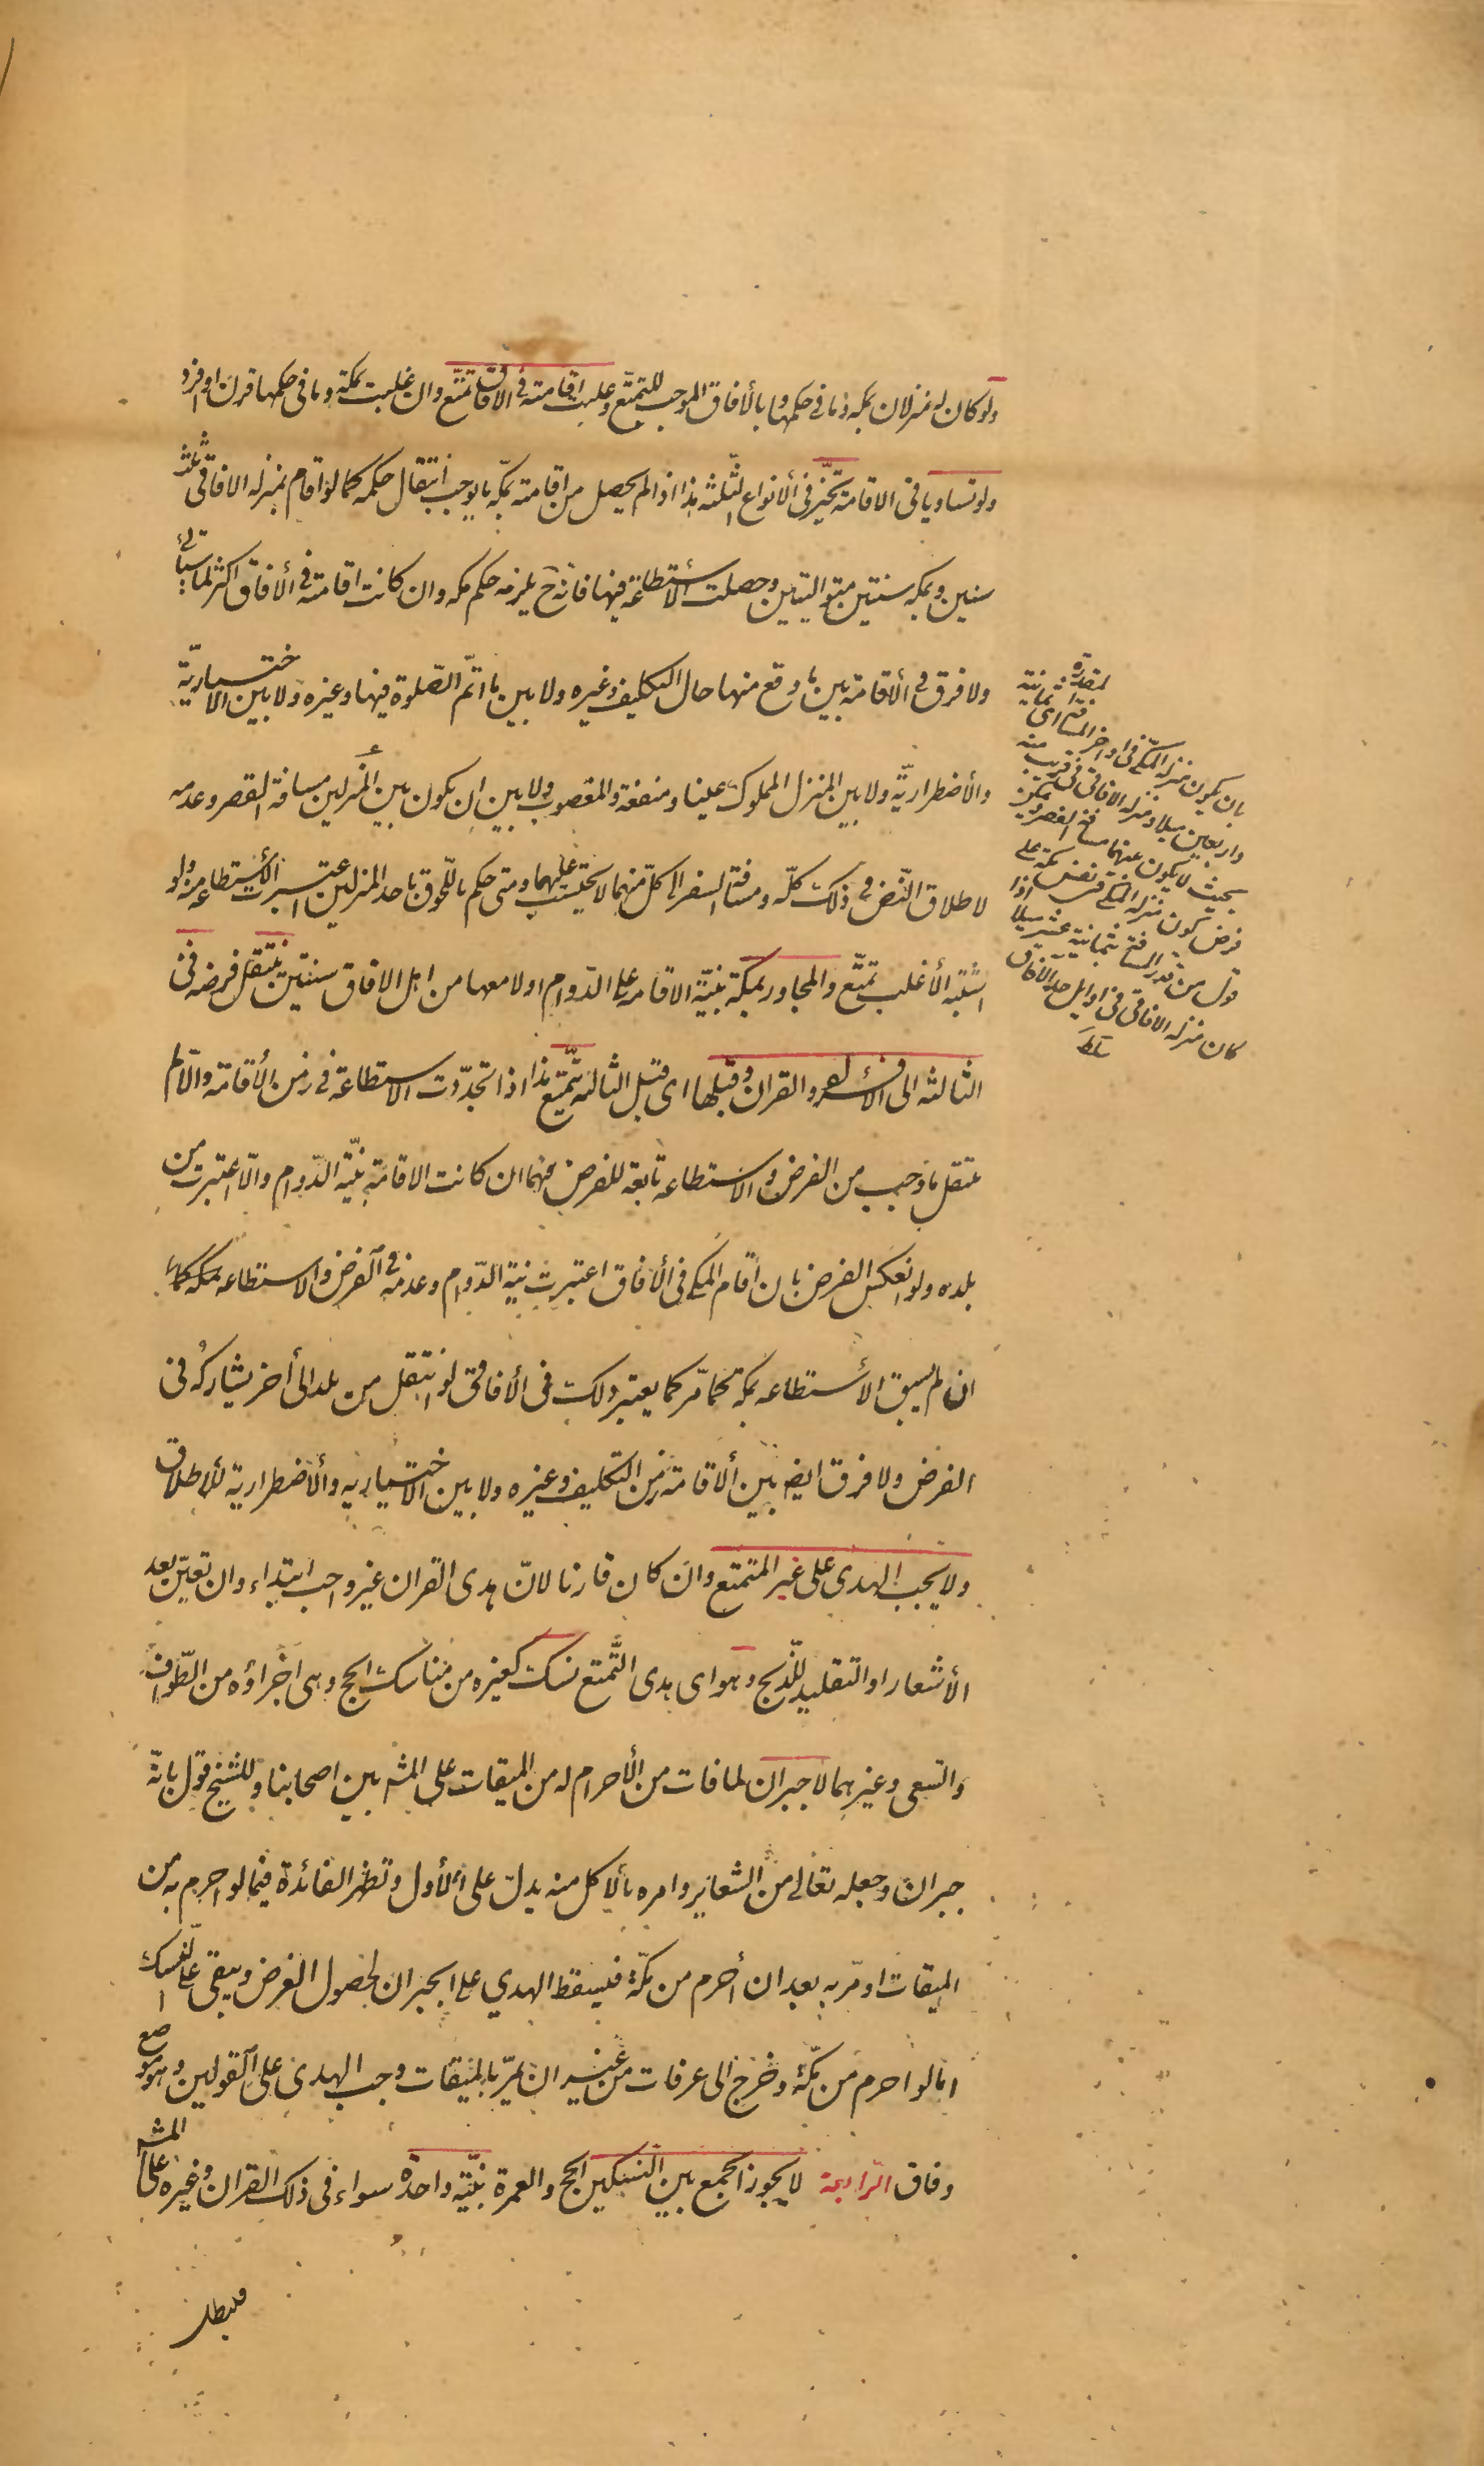 ولو كان له منزلان بمكه وما فى حكمها وبالأفاق الموجب للتمتّع وغلبت اقامته فى الآفاق تمتّع وان غلبت بمكة وما فى حكمها قرن او افرد
ولو تساويا فى الاقامة تخيّر فى الأنواع الثّلثة هذا اذا لم يحصل من اقامته بمكّة ما يوجب انتقال حكمه كما لو اقام بمنزله الافاقى ثلث
سنين وبمكه سنتين متواليتين وحصلت الأستطاعة فيها فانه ح يلزمه حكم مكه وان كانت اقامته فى الأفاق اكثر لما سيأتى
ولا فرق فى الأقامة بين ما وقع منها حال التكليف وغيره ولا بين ما اتمّ الصّلوة فيها وغيره ولا بين الاختياريّة
والأضطراريّة ولا بين المنزل المملوك عينا ومنفعة والمغصوب ولا بين ان يكون بين المنزلين مسافة القصر وعدمه
لاطلاق النّص فى ذلك كلّه ومسافة السفر الى كلّ منهما لا يحتسب عليهما ومتى حكم باللّحوق باحد المنزلين اعتبرت الأستطاعه منه ولو
اشتبه الأغلب تمتّع والمجاور بمكة بنيّة الاقامه على الدّوام اولا معها من اهل الافاق سنتين ينتقل فرضه فى
الثالثه الى الافراد والقران وقبلها اى قبل الثالثه يتمتع هذا اذا تجدّدت الاستطاعة فى زمن الأقامة والّا لم
ينتقل ما وجب من الفرض والاستطاعه تابعة للفرض فيهما ان كانت الاقامة بنيّة الدّوام والّا اعتبرت من
بلده ولو انعكس الفرض بان اقام المكى فى الأفاق اعتبرت نية الدّوام وعدمه فى الفرض والاستطاعه
ان لم يسبق الأستطاعه بمكة كما مّر كما يعتبر ذلك فى الأفاقى لو انتقل من بلد الى أخر يشاركه فى
الفرض ولا فرق ايض بين الاقامة زمن التكليف وغيره ولا بين الاختياريه والأضطرارية للأطلاق
ولا يجب الهدى على غير المتمتع وان كان قارنا لانّ هدى القران غير واجب ابتداء وان تعيّن بعد
الأشعار او التقليد للذّبح وهو اى هدى التّمتع نسك كغيره من مناسك الحج وهى اجزاؤه من الطّواف
والسّعى وغيرهما لا جبران لما فات من الأحرام له من الميقات على المشه بين اصحابنا وللشيخ قول بانّه
جبران وجعله تعالى من الشعاير وامره بالأكل منه يدلّ على الأول وتظهر الفائدة فيما لو احرم به من
الميقات او مّر به بعد ان أحرم من مكّة فيسقط الهدي على الجبران لحصول الغرض ويبقى على النسك
امّا لو احرم من مكّة وخرج الى عرفات من غير ان يمرّ بالميقات وجب الهدى على القولين وهو موضع
وفاق الرّابعة لا يجوز الجمع بين النسكين الحج والعمرة بنيّة واحدة سواء فى ذلك القران وغيره على المشه
فيبطل
بان يكون منزله المكّى فى اواخر المسافة المقدرة اى ثمانية
واربعين ميلا ومنزله الافاقى فى قريب منه
بحيث لا يكون بينهما مسافة القصر ويمكن
فرض كون منزله المكى فى نفس مكة على
قول من قدر المسافة بثمانية عشر ميلا اذا
كان منزله الافاقى فى اوايل حد الآفاق